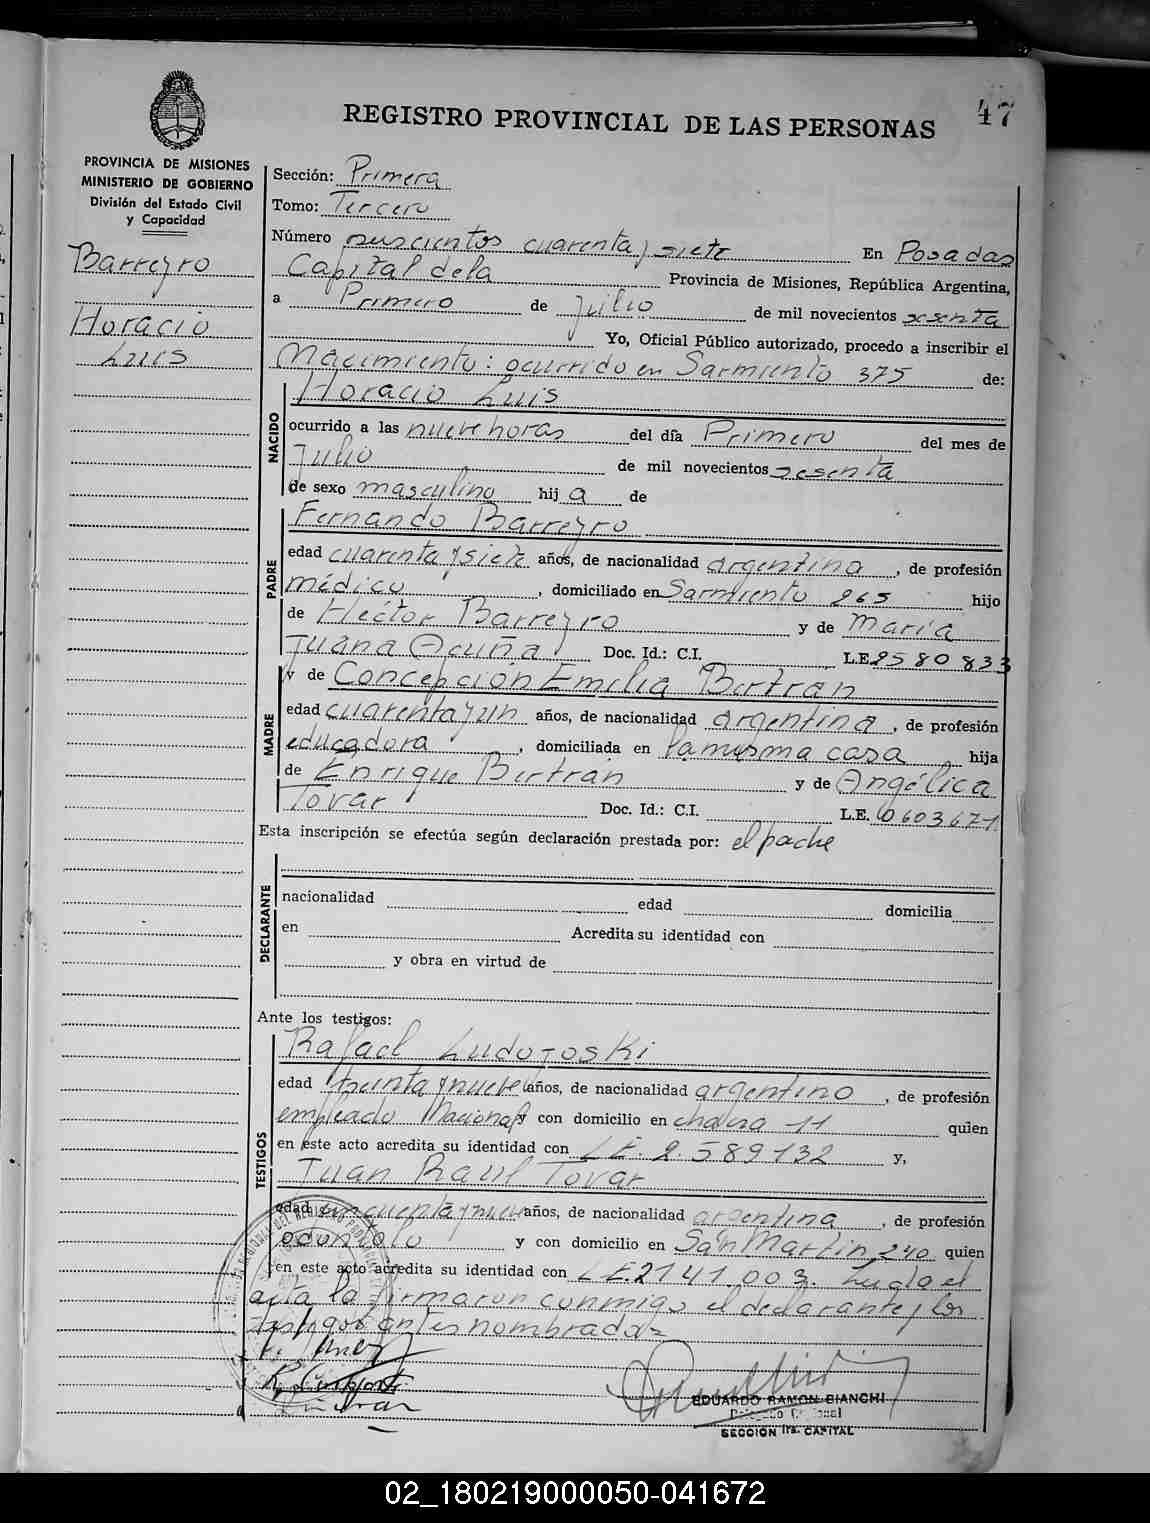 47
REGISTRO PROVINCIAL DE LAS PERSONAS
PROVINCIA DE MISIONES
MINISTERIO DE GOBIERNO
División del Estado Civil
y Capacidad
Barreyro
Horacio
Luis
Sección: Primera
Tomo: Tercero
Número cuarenta y siete En Posadas
Capital de la Provincia de Misiones, República Argentina,
a Primero de Julio de mil novecientos sesenta
Yo, Oficial Público autorizado, procedo a inscribir el
Nacimiento: ocurrido en Sarmiento 375 de:
NACIDO
Horacio Luis
ocurrido a las nueve horas del día Primero del mes de
Julio de mil novecientos sesenta
de sexo masculino hij a de
PADRE
Fernando Barreyro
edad cuarenta y siete años, de nacionalidad argentina, de profesión
médico, domiciliado en Sarmiento 265 hijo
de Héctor Barreyro y de María
Juana Acuña Doc. Id.: C.I. L.E. 2580833
MADRE
y de Concepción Emilia Bertrán
edad cuarenta y un años, de nacionalidad argentina, de profesión
educadora, domiciliada en la misma casa hija
de Enrique Bertrán y de Angélica
Tovar Doc. Id.: C.I. L.E. 0603671
Esta inscripción se efectúa según declaración prestada por: el padre
DECLARANTE
nacionalidad edad domicilia
en Acredita su identidad con
y obra en virtud de
Ante los testigos:
TESTIGOS
Rafael Ludojoski
edad treinta y nueve años, de nacionalidad argentino, de profesión
empleado Nacional y con domicilio en chacra 11 quien
en este acto acredita su identidad con L.E. 2.589132 y,
Juan Raúl Tovar
edad cincuenta y nueve años, de nacionalidad argentina, de profesión
odontolo y con domicilio en San Martin 240 quien
en este acto acredita su identidad con L.E. 2141.003. Leida el
acta la firmaron conmigo el declarante y los
testigos antes nombrados
EDUARDO RAMON BIANCHI
SECCIÓN 1ra. CAPITAL
02_180219000050-041672